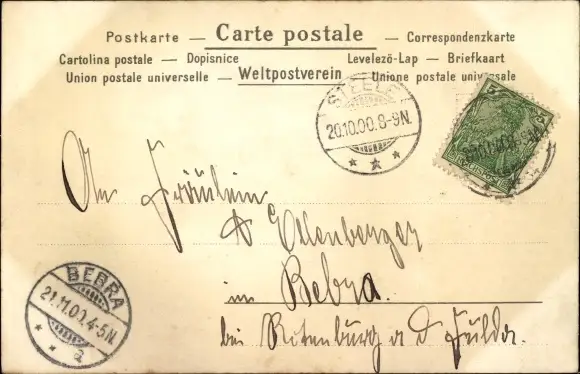 Postkarte — Carte postale — Correspondenzkarte
Cartolina postale — Dopisnice Levelező-Lap — Briefkaart
Union postale universelle — Weltpostverein — Unione postale universale
STEELE
20.10.00.8-9N.
5
REICHSPOST
An Fräulein
A Ellenberger
in Bebra.
bei Rotenburg a d Fulda.
BEBRA
21.11.00.4-5N.
a